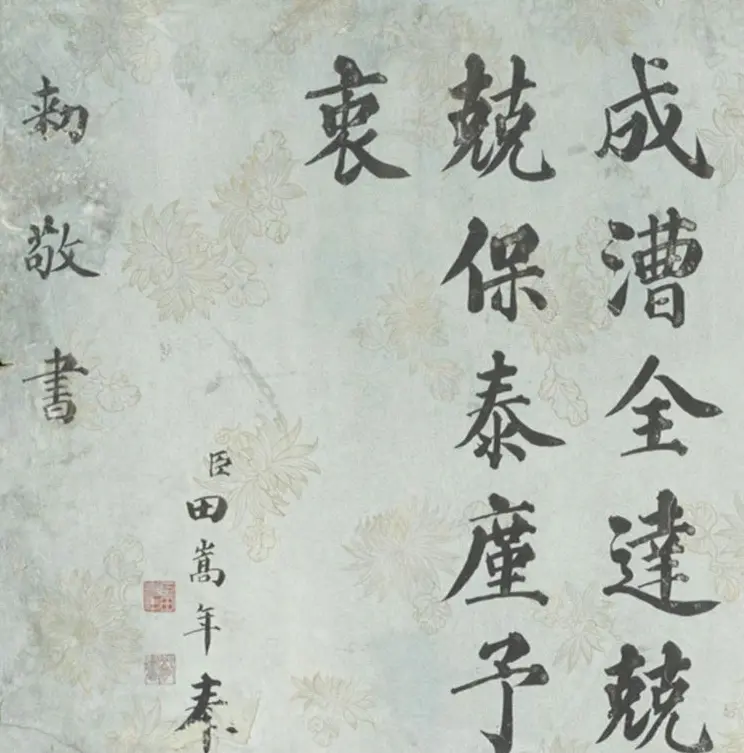 成漕全達兢
兢保泰廑予
衷
臣田嵩年奉
勅敬書